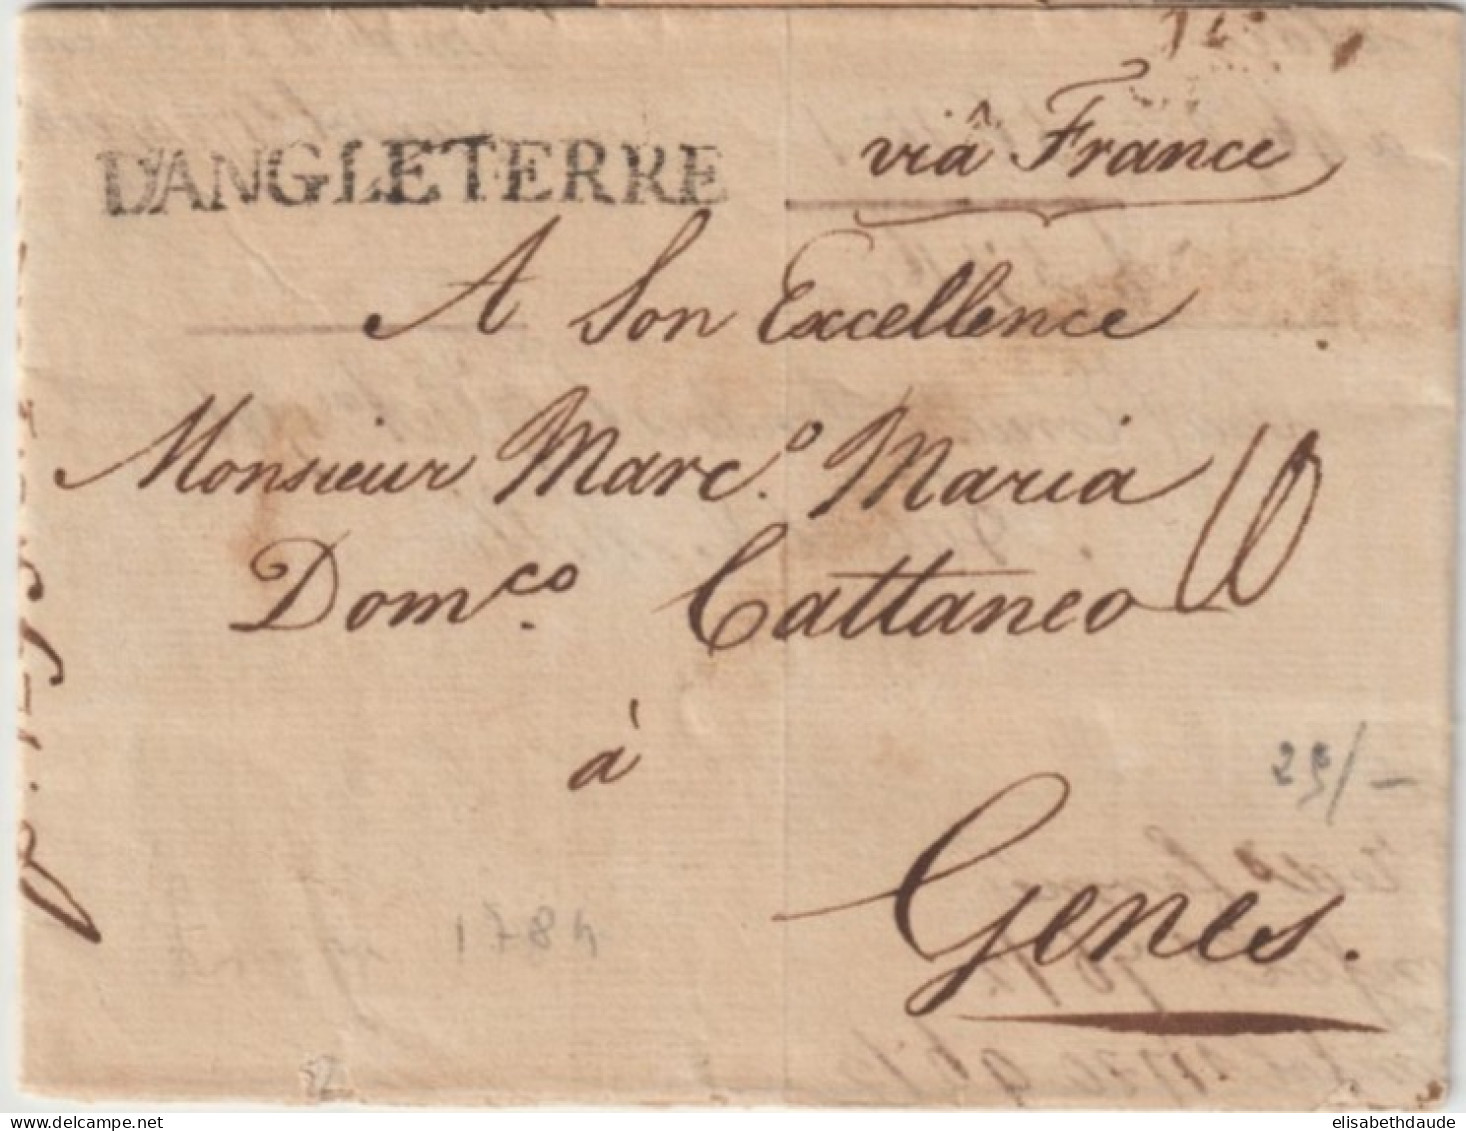 D'ANGLETERRE
viâ France
A Son Excellence
Monsieur Marc.º Maria
Dom.co Cattaneo
à
Genes.
10
25/-
1784
elisabethdaude